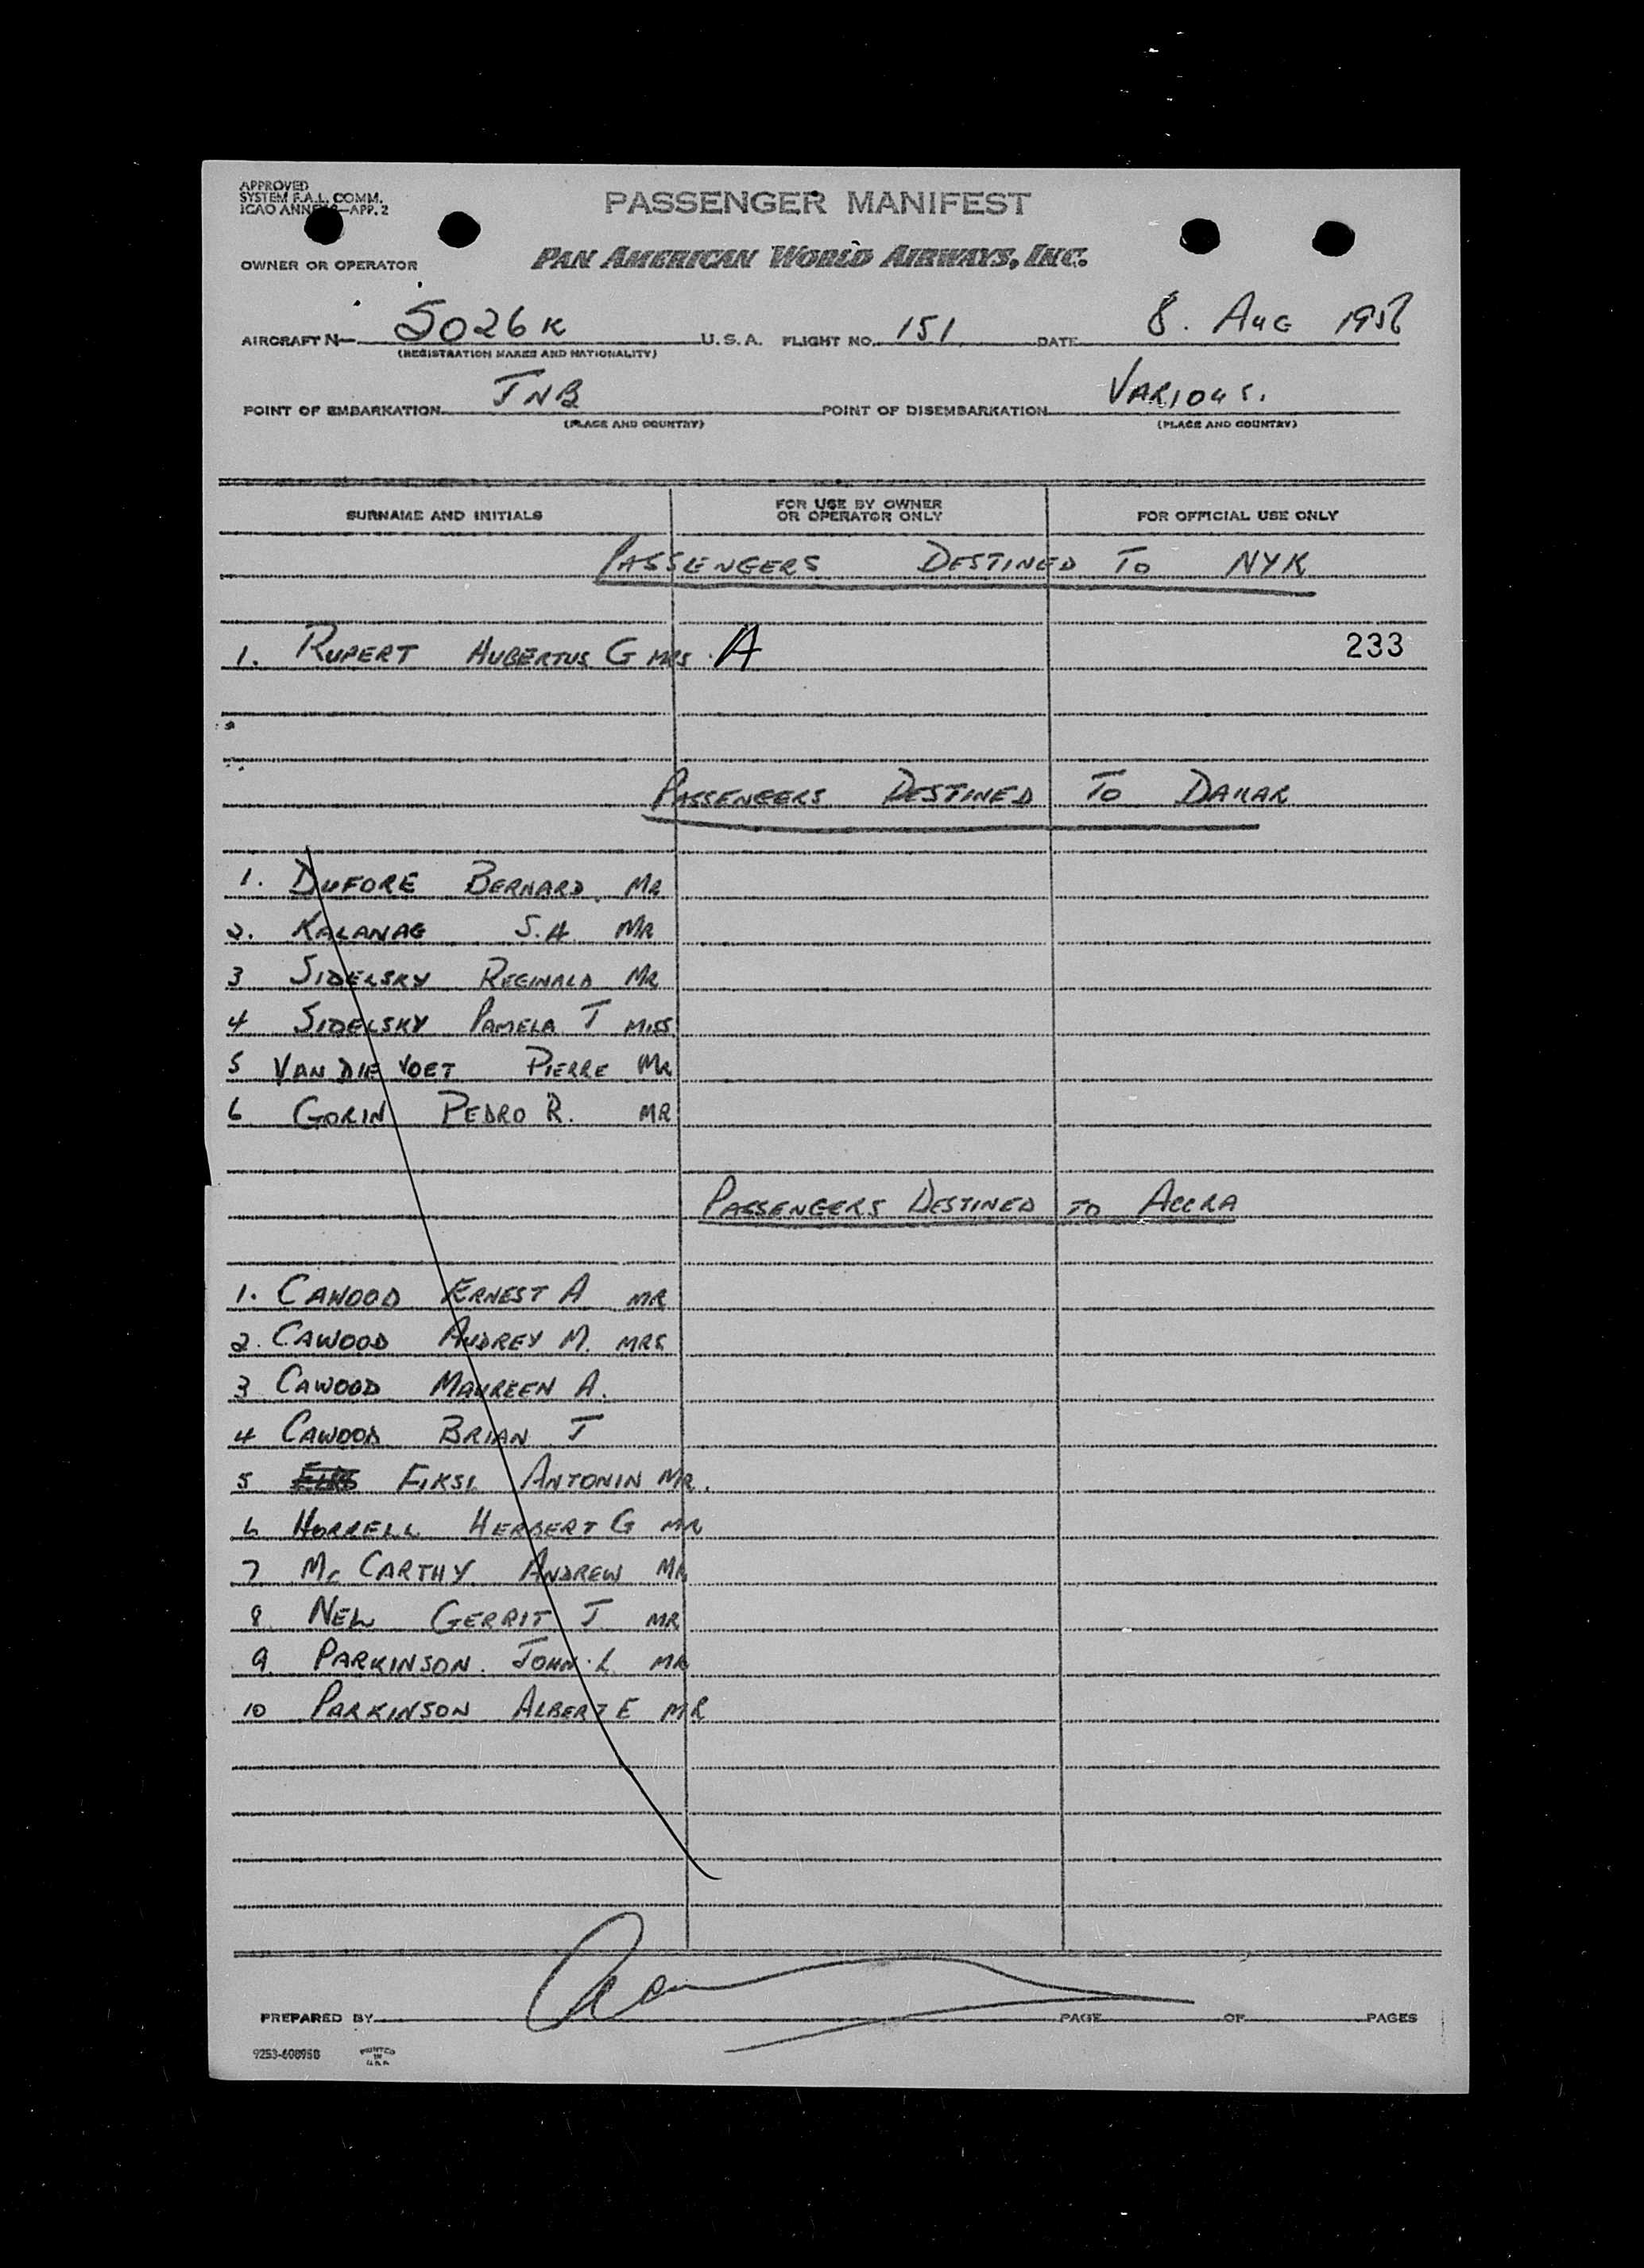 APPROVED
SYSTEM F.A.L. COMM.
ICAO ANNEX 9—APP. 2
PASSENGER MANIFEST
OWNER OR OPERATOR PAN AMERICAN WORLD AIRWAYS, INC.
AIRCRAFT N— 5026K U.S.A. FLIGHT NO. 151 DATE 8. AUG 1956
(REGISTRATION MARKS AND NATIONALITY)
POINT OF EMBARKATION JNB POINT OF DISEMBARKATION VARIOUS.
(PLACE AND COUNTRY) (PLACE AND COUNTRY)
SURNAME AND INITIALS FOR USE BY OWNER OR OPERATOR ONLY FOR OFFICIAL USE ONLY
PASSENGERS DESTINED TO NYK
1. RUPERT HUBERTUS G MRS. A 233
PASSENGERS DESTINED TO DAKAR
1. DUFORE BERNARD MR
2. KALANAG S.H MR
3 SIDELSKY REGINALD MR
4 SIDELSKY PAMELA J MISS
5 VAN DIE VOET PIERRE MR
6 GORIN PEDRO R. MR
PASSENGERS DESTINED TO ACCRA
1. CAWOOD ERNEST A MR
2. CAWOOD AUDREY M. MRS
3 CAWOOD MAUREEN A.
4 CAWOOD BRIAN J
5 FIKSL ANTONIN MR.
6 HORRELL HERBERT G MR
7 Mc CARTHY ANDREW MR
8. NEL GERRIT J MR
9. PARKINSON JOHN L MR
10 PARKINSON ALBERT E MR
PREPARED BY PAGE OF PAGES
9253-608958 PRINTED IN U.S.A.